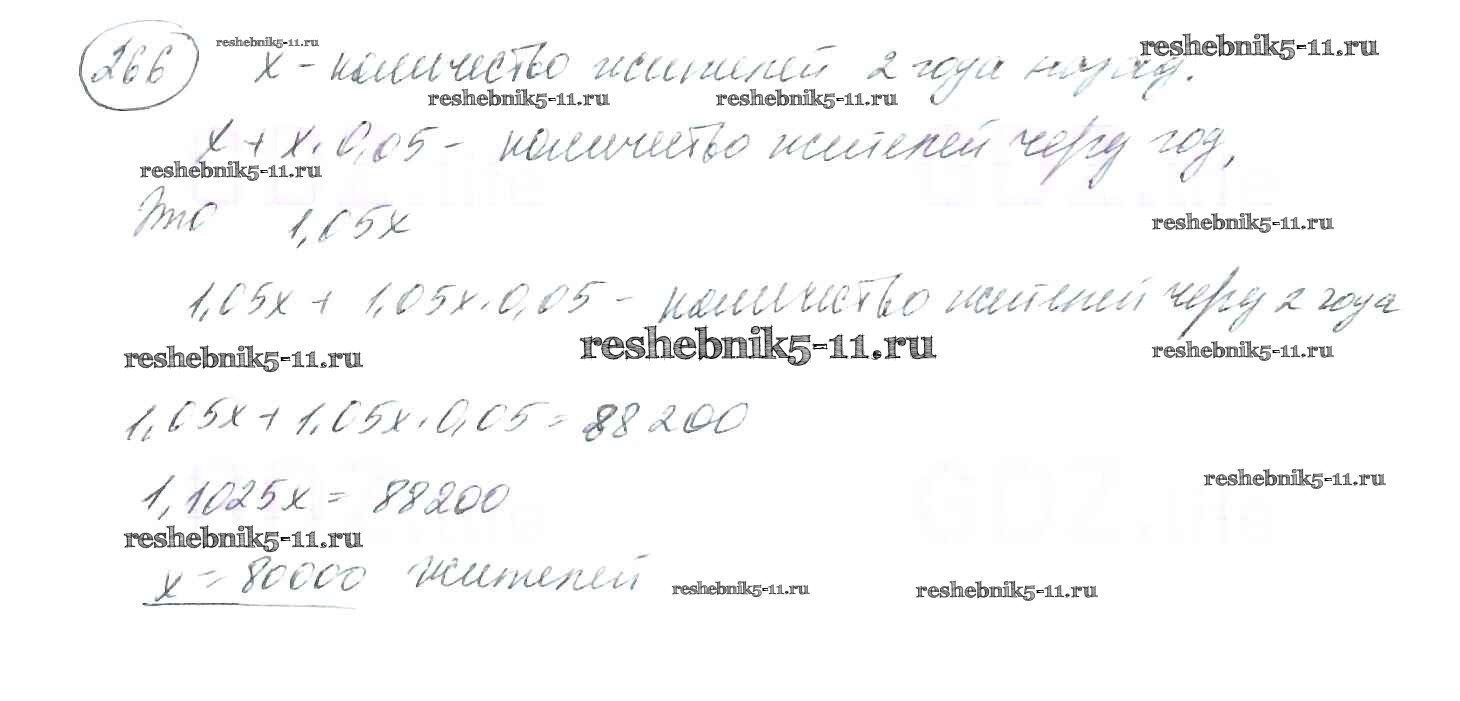 266 x - количество жителей 2 года назад.
reshebnik5-11.ru
reshebnik5-11.ru
reshebnik5-11.ru reshebnik5-11.ru
x + x · 0,05 - количество жителей через год,
reshebnik5-11.ru
Это 1,05x
reshebnik5-11.ru
1,05x + 1,05x · 0,05 - количество жителей через 2 года
reshebnik5-11.ru reshebnik5-11.ru reshebnik5-11.ru
1,05x + 1,05x · 0,05 = 88200
1,1025x = 88200
reshebnik5-11.ru
reshebnik5-11.ru
x = 80000 жителей
reshebnik5-11.ru reshebnik5-11.ru